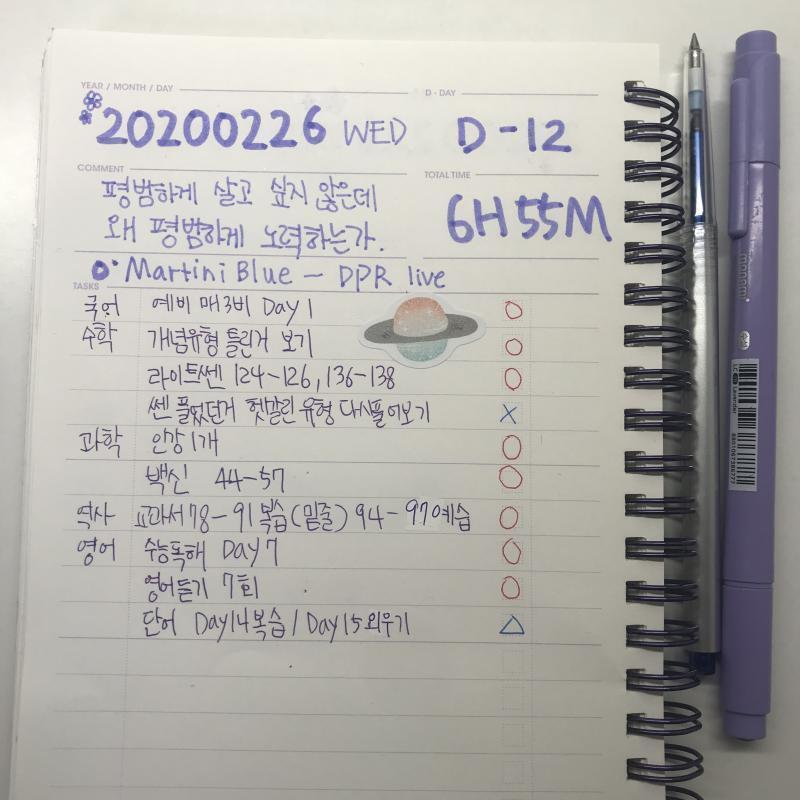 YEAR / MONTH / DAY
D - DAY
20200226 WED D-12
COMMENT
TOTAL TIME
평범하게 살고 싶지 않은데
왜 평범하게 노력하는가.
6H 55M
Martini Blue - DPR live
TASKS
국어 예비 매3비 Day 1 O
수학 개념유형 틀린거 보기 O
라이트쎈 124-126, 136-138 O
쎈 풀었던거 헷갈린 유형 다시풀어보기 X
과학 인강 1개 O
백신 44-57 O
역사 교과서 78-91 복습(밑줄) 94-97 예습 O
영어 수능독해 Day 7 O
영어듣기 7회 O
단어 Day14 복습 / Day15 외우기 △
monami
Lavender